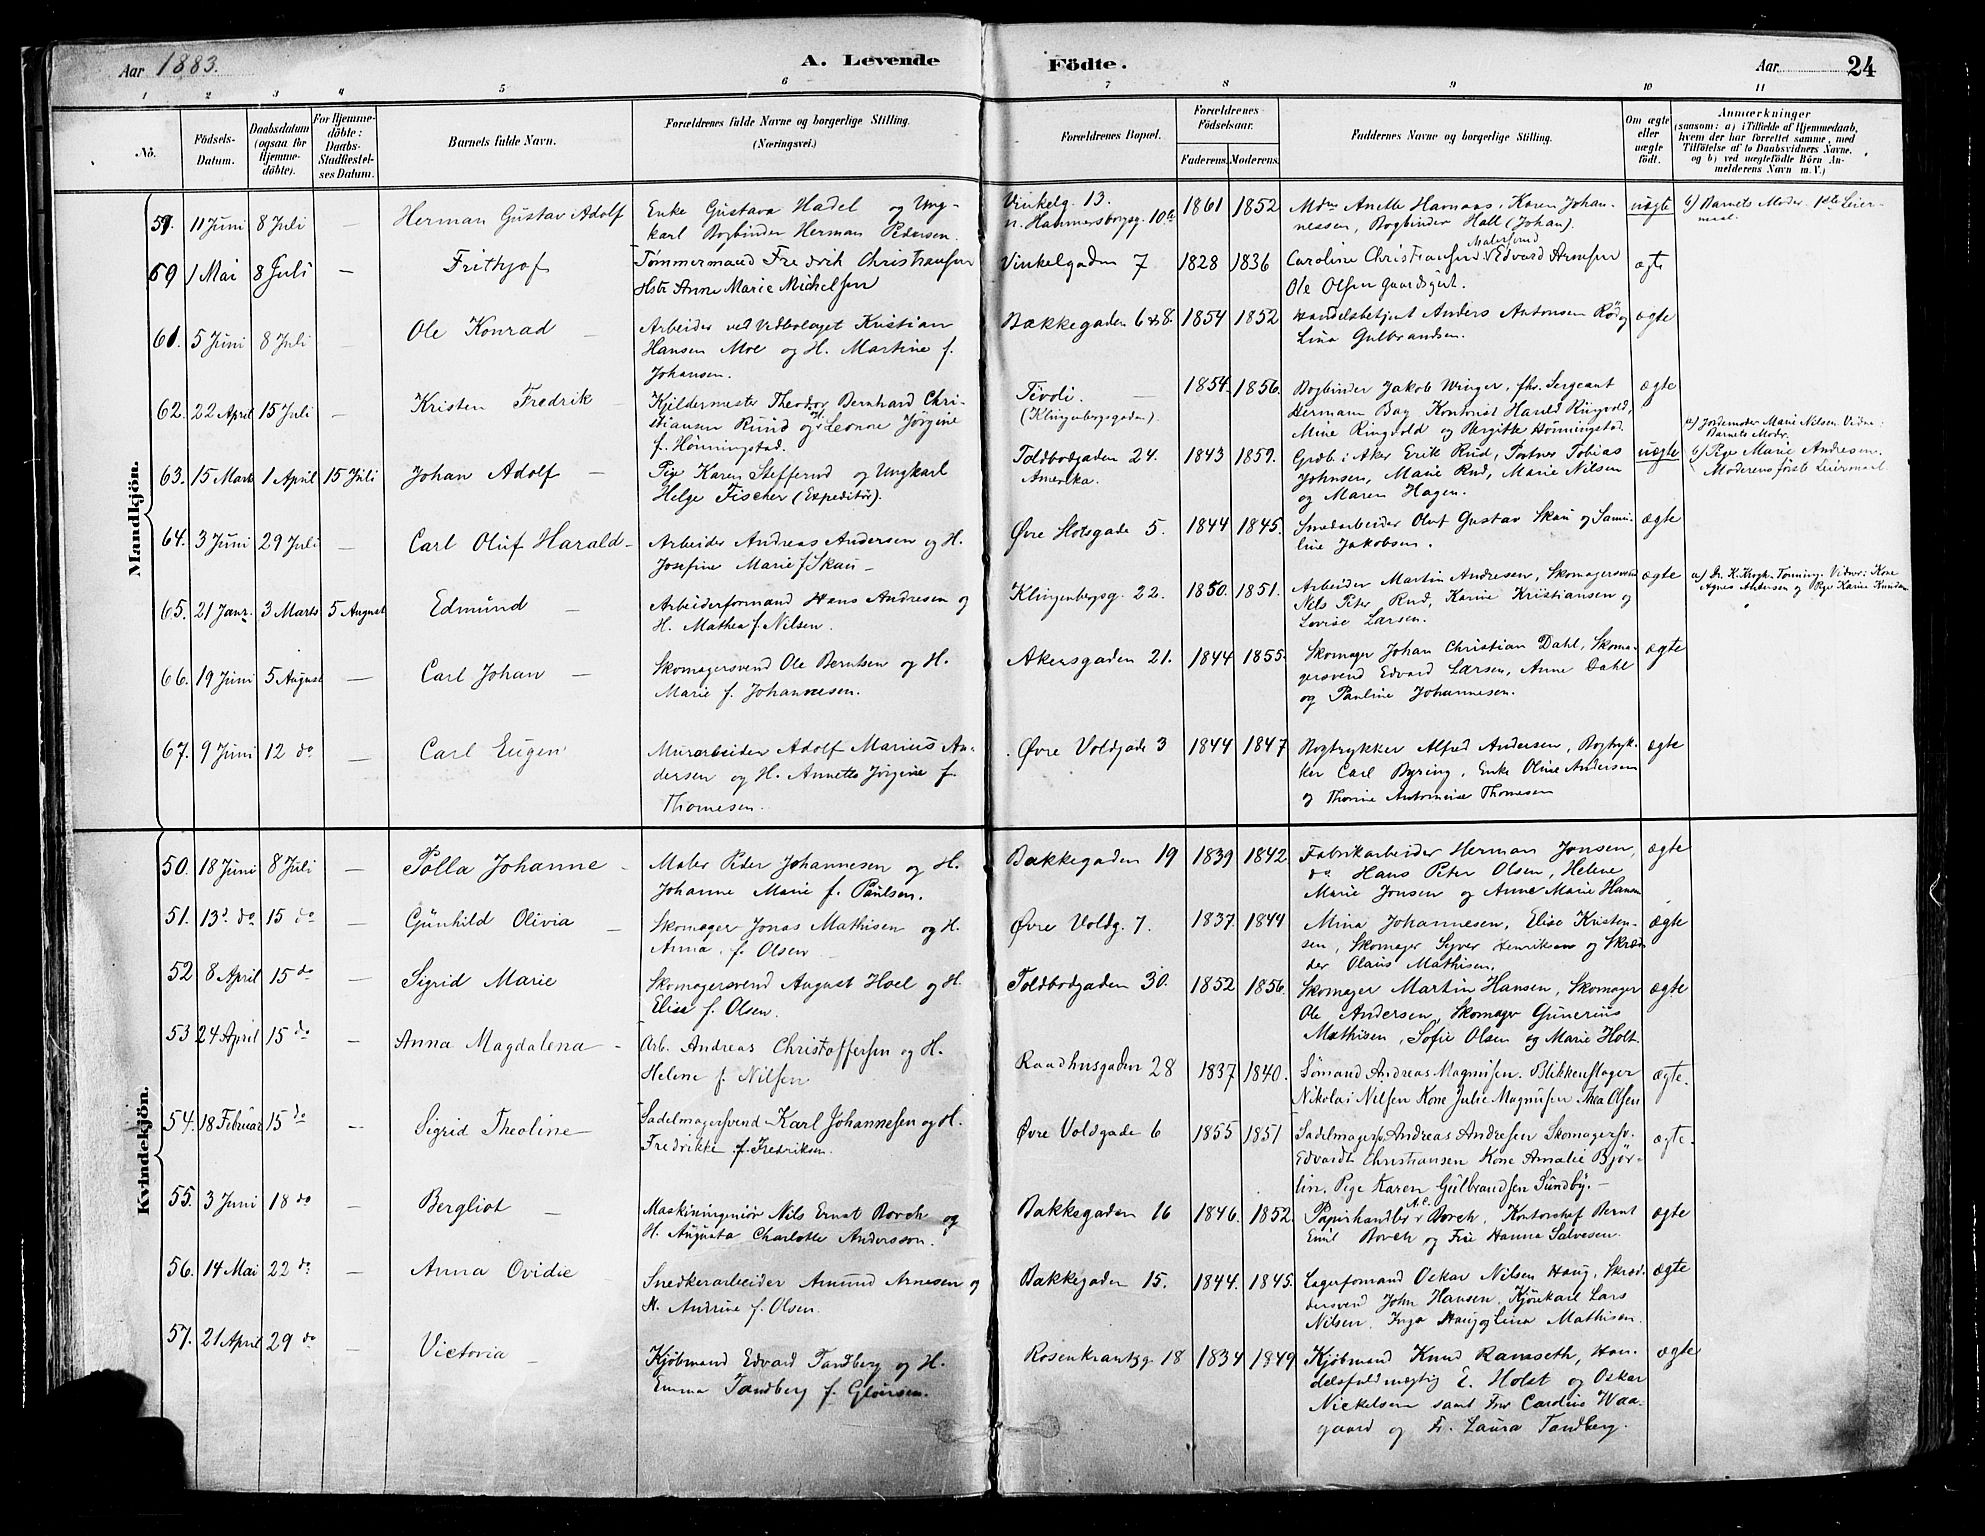 Aar 1883.
A. Levende Födte.
Aar 24
1 2 3 4 5 6 7 8 9 10 11
No.
Födsels-Datum.
Daabsdatum (ogsaa for Hjemme-döbte).
For Hjemme-döbte: Daabs-Stadfæstel-ses Datum.
Barnets fulde Navn.
Forældrenes fulde Navne og borgerlige Stilling. (Næringsvei.)
Forældrenes Bopæl.
Forældrenes Födselsaar.
Faderens. Moderens.
Faddernes Navne og borgerlige Stilling.
Om ægte eller uægte födt.
Anmærkninger
(saasom: a) i Tilfælde af Hjemmedaab, hvem der har forrettet samme, med Tilföielse af to Daabsvidners Navne. og b) ved uægtefödte Börn Anmelderens Navn m. V.)
Mandkjön.
59. 11 Juni 8 Juli — Herman Gustav Adolf
Enke Gustava Hadel og Ung-
karl Bogbinder Herman Pedersen.
Vinkelg. 13.
n. Hammersborgg. 10 b
1861 1852
Mdm Anette Hansen, Karen Johan-
nessen, Bogbinder Hall (Johan).
uægte
b) Barnets Moder. 1ste Leier-
maal.
1 Mai 8 Juli — Frithjof
Tømmermand Fredrik Christiansen
Hstr Anne Marie Michelsen
Vinkelgaden 7 1828 1836
Caroline Christiansen Malersvend Edvard Arnesen
Ole Olsen Gaardsgut.
ægte
61. 5 Juni 8 Juli — Ole Konrad —
Arbeider ved Vedbolaget Kristian
Hansen Moe og H. Martine f.
Johansen.
Bakkegaden 6 & 8. 1854 1852
Handelsbetjent Anders Antonsen Rød og
Lina Gulbrandsen.
ægte
62. 22 April 15 Juli — Kristen Fredrik —
Kjeldermester Theodor Bernhard Chri-
stiansen Rund og H. Leonore Jørgine
f. Hønningstad.
Tivoli. —
(Klingenbergsgaden).
1854. 1856.
Bogbinder Jakob Winger, fhv. Sergeant
Hermann Bay Kontorist Harald Ringvold,
Mine Ringvold og Birgitte Hønningstad.
ægte
63. 15 Marts 1 April 15 Juli Johan Adolf —
Pige Karen Steffensd og Ungkarl
Helge Fischer (Expeditør).
Toldbodgaden 24.
Amerika.
1843 1859.
Grdb. i Aker Erik Rud, Portner Tobias
Johnsen, Marie Rud, Marie Nilsen
og Maren Hagen.
uægte
a) Jordemoder Marie Nilsen Vidne:
Barnets Moder.
b) Pige Marie Andresen.
Moderens første Leiermaal
64. 3 Juni 29 Juli — Carl Oluf Harald —
Arbeider Andreas Andersen og H.
Josefine Marie f. Skau —
Øvre Slotsgade 5. 1844 1845.
Smedarbeider Oluf Gustav Skau og Samu-
line Jakobsen.
ægte
65. 21 Janr. 3 Marts 5 August Edmund —
Arbeiderformand Hans Andresen og
H. Mathea f. Nilsen.
Klingenbergg. 22. 1850. 1851.
Arbeider Martin Andresen, Skomagersvend
Nils Peter Rud, Karine Kristiansen og
Lovise Larsen.
ægte
a) Dr. K. Krogh-Tonning. Vidner: Kone
Agnes Andersen og Pige Karine
66. 19 Juni 5 August — Carl Johan —
Skomagersvend Ole Berntsen og H.
Marie f. Johannesen.
Akersgaden 21. 1844 1855.
Skomager Johan Christian Dahl, Skoma-
gersvend Edvard Larsen, Anne Dahl
og Pauline Johannesen.
ægte
67. 9 Juni 12 do — Carl Eugen
Murarbeider Adolf Marius An-
dersen og H. Annette Jørgine f.
Thomesen.
Øvre Voldgade 3 1844 1847
Bogtrykker Alfred Andersen, Bogtryk-
ker Carl Byring, Enke Oline Andersen
og Thorine Antonnise Thomesen
ægte
Kvindekjön.
50. 18 Juni 8 Juli — Polla Johanne —
Maler Peder Johannesen og H.
Johanne Marie f. Paulsen.
Bakkegaden 19 1839 1842.
Fabrikarbeider Herman Jonsen,
do Hans Peter Olsen, Helene
Marie Jonsen og Anne Marie Hansen
ægte
51. 13. do 15 do — Gunhild Olivia —
Skomager Jonas Mathisen og H.
Anna f. Olsen —
Øvre Voldg. 7. 1837. 1844
Mina Johannesen, Elise Kristen-
sen, Skomager Syver Henriksen og Skræd-
der Olaus Mathisen.
ægte
52 8 April 15 do — Sigrid Marie
Skomagersvend August Hoel og H.
Elise f. Olsen.
Toldbodgaden 30. 1852 1856.
Skomager Martin Hansen, Skomager
Ole Andersen, Skomager Gunerius
Mathisen, Sofie Olsen og Marie Holt
ægte
53 24 April 15 do — Anna Magdalena —
Arb. Andreas Christoffersen og H.
Helene f. Nilsen
Raadhusgaden 28 1837 1840.
Sømand Andreas Magnussen. Blikkenslager
Nikolai Nilsen Kone Julie Magnussen Thea Olsen
ægte.
54. 18 Februar 15 do — Sigrid Theoline —
Sadelmagersvend Karl Johannesen og H.
Fredrikke f. Fredriksen.
Øvre Voldgade 6 1855 1851
Sadelmagersv. Andreas Andresen Skomagersv.
Edvardt Christiansen Kone Amalie Bjør-
lin. Pige Karen Gulbrandsen Sundby. —
ægte.
55. 3 Juni 18 do — Bergliot —
Maskiningeniør Nils Ernst Borch og
H. Augusta Charlotte Andersson.
Bakkegaden 16 1846. 1852.
Papirhandler A.C. Borch, Kontorchef Bernt
Emil Borch og Frk Hanna Salvesen.
ægte
56. 14 Mai 22 do — Anna Ovidie
Snedkerarbeider Amund Arnesen og
H. Andrine f. Olsen.
Bakkegaden 15. 1844. 1845.
Lagerformand Oskar Nilsen Haug, Skræd-
dersvend John Hansen, Kjørekarl Lars
Nilsen, Inga Haug og Lina Mathisen.
ægte
57. 21 April 29 do — Victoria —
Kjøbmand Edvard Tandberg og H.
Emma Tandberg f. Gløersen.
Rosenkrantzg. 18 1834 1849
Kjøbmand Knud Ramseth, Han-
delsfuldmægtig E. Holst og Oskar
Nickelsen samt Fru Caroline Waa-
gaard og Fr. Laura Tandberg.
ægte